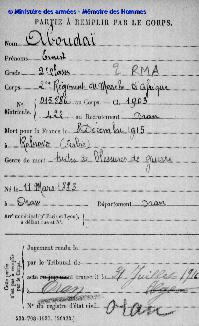 © Ministère des armées - Mémoire des Hommes
PARTIE À REMPLIR PAR LE CORPS.
Nom Aboudaï
Prénoms Ernest
Grade 2e Classe 2 RMA
Corps 2me Régiment de Marche d'Afrique
N° Matricule. au Corps. — Cl. 1903
422 au Recrutement Oran
Mort pour la France le Décembre 1915
à (Serbie)
Genre de mort suites de Blessures de guerre
Né le 11 Mars 1883
à Oran Département Oran
Arrt municipal (Paris et Lyon), à défaut rue et N°.
Jugement rendu le
par le Tribunal de
acte ou jugement transcrit le 21 Juillet 1916
à Oran
N° du registre d'état civil Oran